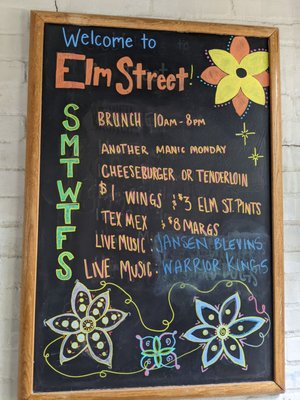 Welcome to
Elm Street!
S BRUNCH 10AM-8PM
M ANOTHER MANIC MONDAY
T CHEESEBURGER OR TENDERLOIN
W $1 WINGS & $3 ELM ST. PINTS
T TEX MEX & $8 MARGS
F LIVE MUSIC: JANSEN BLEVINS
S LIVE MUSIC: WARRIOR KINGS